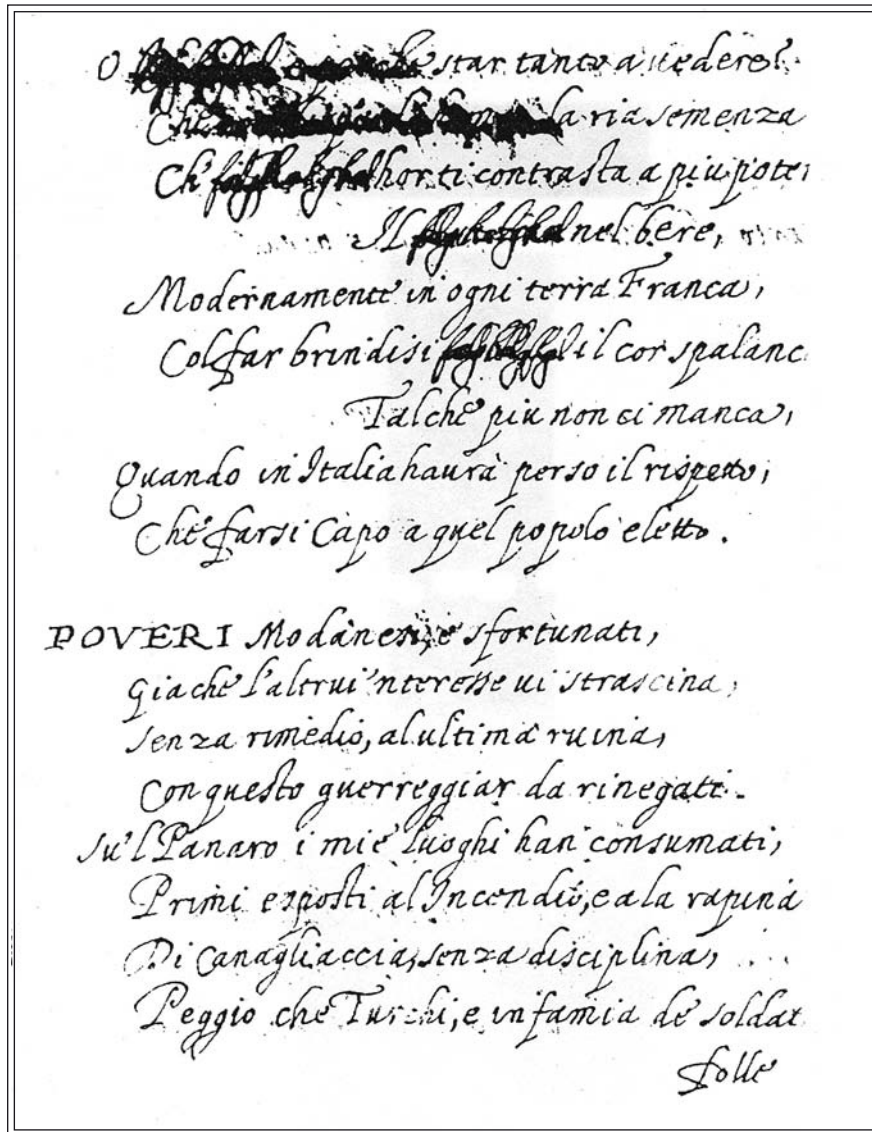 O star tanto a vedere
Che la ria semenza
Ch' hor ti contrasta a piu pote
Il nel bere,
Modernamente in ogni terra Franca,
Col far brindisi il cor spalanc
Talche piu non ci manca,
Quando in Italia haurà perso il rispetto,
Che farsi Capo a quel popolo eletto.
POVERI Modanesi, e sfortunati,
Gia che l'altrui 'nteresse ui strascina,
Senza rimedio, al ultima ruina,
Con questo guerreggiar da rinegati.
Su'l Panaro i miè luoghi han consumati,
Primi esposti al Incendio, e a la rapina
Di Canagliaccia, senza disciplina,
Peggio che Turchi, e infamia de soldat
folle